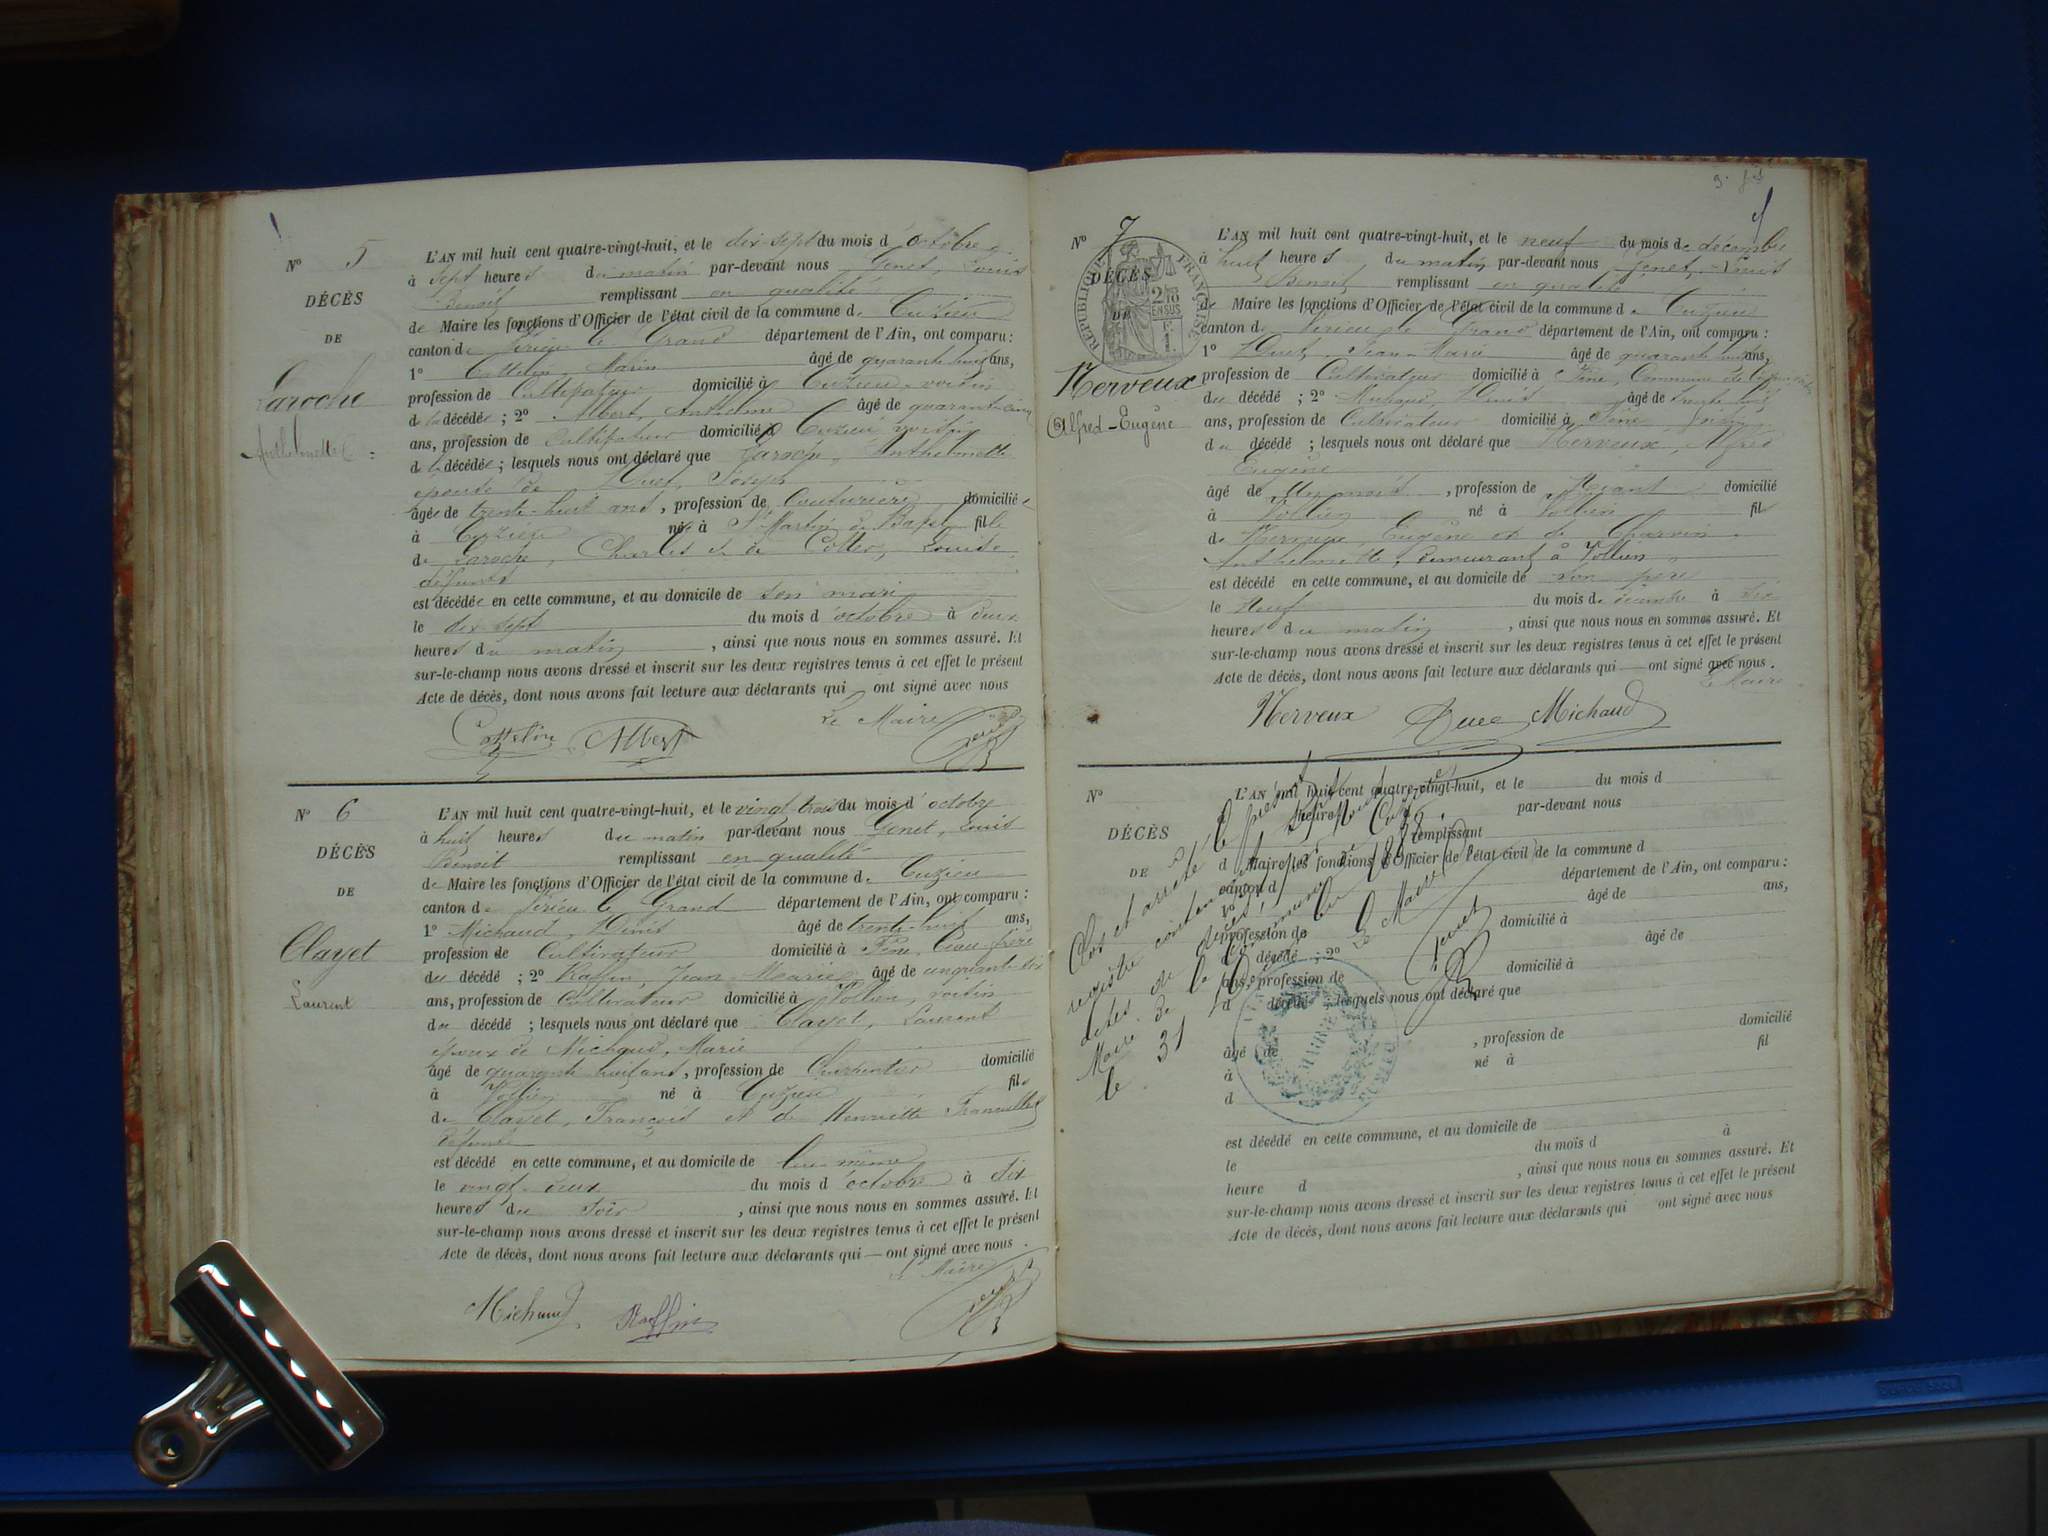 N° 5
DÉCÈS
DE
Laroche
Anthelmette
L'AN mil huit cent quatre-vingt-huit, et le dix-sept du mois d'octobre
à sept heures du matin par-devant nous Genet, Louis
Benoit remplissant en qualité
de Maire les fonctions d'Officier de l'état civil de la commune de Cuzieu
canton de Virieu le Grand département de l'Ain, ont comparu :
1° Cottelin, Marin âgé de quarante huit ans,
profession de Cultivateur domicilié à Cuzieu, voisin
de la décédée ; 2° Albert, Anthelme âgé de quarante-cinq
ans, profession de Cultivateur domicilié à Cuzieu, voisin
de la décédée ; lesquels nous ont déclaré que Laroche, Anthelmette
épouse de Huet, Joseph
âgée de trente-huit ans, profession de Couturière domiciliée
à Cuzieu née à St Martin de Bavel fille
de Laroche, Charles et de Louise
défunts
est décédée en cette commune, et au domicile de son mari
le dix sept du mois d'octobre à deux
heures du matin, ainsi que nous nous en sommes assuré. Et
sur-le-champ nous avons dressé et inscrit sur les deux registres tenus à cet effet le présent
Acte de décès, dont nous avons fait lecture aux déclarants qui ont signé avec nous
Le Maire
Cottelin Albert Genet
N° 6
DÉCÈS
DE
Clayet
Laurent
L'AN mil huit cent quatre-vingt-huit, et le vingt-trois du mois d'octobre
à huit heures du matin par-devant nous Genet, Louis
Benoit remplissant en qualité
de Maire les fonctions d'Officier de l'état civil de la commune de Cuzieu
canton de Virieu le Grand département de l'Ain, ont comparu :
1° Michaud, Denis âgé de trente-huit ans,
profession de Cultivateur domicilié à Beau-frère
du décédé ; 2° Raffin, Jean-Marie âgé de cinquante-six
ans, profession de Cultivateur domicilié à Vollien, voisin
du décédé ; lesquels nous ont déclaré que Clayet, Laurent
époux de Michaud, Marie
âgé de quarante huit ans, profession de Charpentier domicilié
à Vollien né à Cuzieu fils
de Clayet, François et de Henriette
défunts
est décédé en cette commune, et au domicile de lui-même
le vingt-deux du mois d'octobre à six
heures du soir, ainsi que nous nous en sommes assuré. Et
sur-le-champ nous avons dressé et inscrit sur les deux registres tenus à cet effet le présent
Acte de décès, dont nous avons fait lecture aux déclarants qui — ont signé avec nous.
Le Maire
Michaud Raffin Genet
N° 7
RÉPUBLIQUE FRANÇAISE
DÉCÈS
DE
Nerveux
Alfred-Eugène
L'AN mil huit cent quatre-vingt-huit, et le neuf du mois de décembre
à huit heures du matin par-devant nous Genet, Louis
Benoit remplissant en qualité
de Maire les fonctions d'Officier de l'état civil de la commune de Cuzieu
canton de Virieu le Grand département de l'Ain, ont comparu :
1° Huet, Jean-Marie âgé de quarante huit ans,
profession de Cultivateur domicilié à Commune de Cuzieu, voisin
du décédé ; 2° Michaud, Denis âgé de trente huit
ans, profession de Cultivateur domicilié à voisin
du décédé ; lesquels nous ont déclaré que Nerveux, Alfred
Eugène
âgé de un mois, profession de Néant domicilié
à Vollien né à Vollien fils
de Nerveux, Eugène et de Charvin
Anthelmette, demeurant à Vollien
est décédé en cette commune, et au domicile de son père
le neuf du mois de décembre à six
heures du matin, ainsi que nous nous en sommes assuré. Et
sur-le-champ nous avons dressé et inscrit sur les deux registres tenus à cet effet le présent
Acte de décès, dont nous avons fait lecture aux déclarants qui — ont signé avec nous.
Le Maire
Nerveux Huet Michaud
N°
DÉCÈS
DE
L'AN mil huit cent quatre-vingt-huit, et le du mois d
heure par-devant nous
remplissant
d Maire les fonctions d'Officier de l'état civil de la commune d
canton d département de l'Ain, ont comparu :
1° âgé de ans,
profession de domicilié à
d décédé ; 2° âgé de
ans, profession de domicilié à
d décédé ; lesquels nous ont déclaré que
âgé de , profession de domicilié
à né à fil
d
est décédé en cette commune, et au domicile de
le du mois d à
heure d , ainsi que nous nous en sommes assuré. Et
sur-le-champ nous avons dressé et inscrit sur les deux registres tenus à cet effet le présent
Acte de décès, dont nous avons fait lecture aux déclarants qui ont signé avec nous
Clos et arrêté le présent
registre contenant sept
actes de décès, par Nous
Maire de la Commune de Cuzieu
le 31 Décembre 1888
Le Maire
Genet
MAIRIE